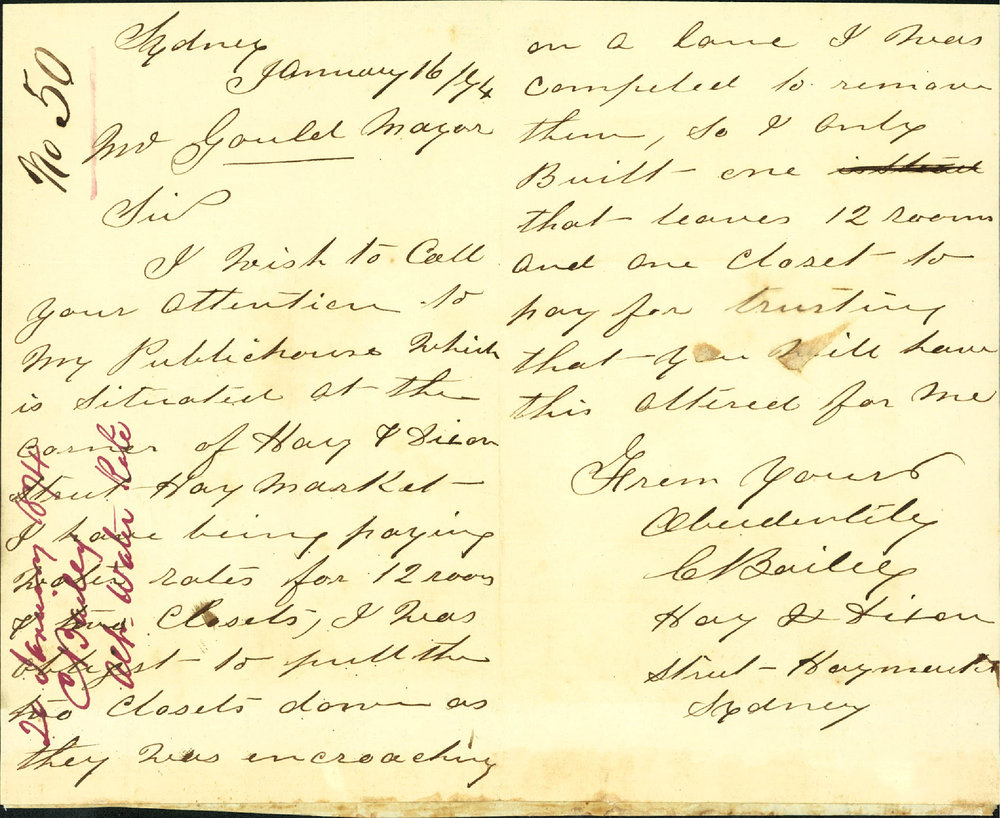 No 50
Sydney
January 16/74
Mr Gould Mayor
Sir
I wish to Call
your attention to
my Publichouse which
is situated at the
corner of Hay & Dixon
Street Haymarket
I have being paying
water rates for 12 room
& two Closets, I was
obligst to pull the
two Closets down as
they was encroaching
on a lane I was
compeled to remove
them, so I only
Built one
that leaves 12 rooms
and one closet to
pay for trusting
that you will have
this altered for me
From Yours
Obeidentily
C Bailey
Hay & Dixon
Street Haymarket
Sydney
January 1874
C Bailey
Water Rate